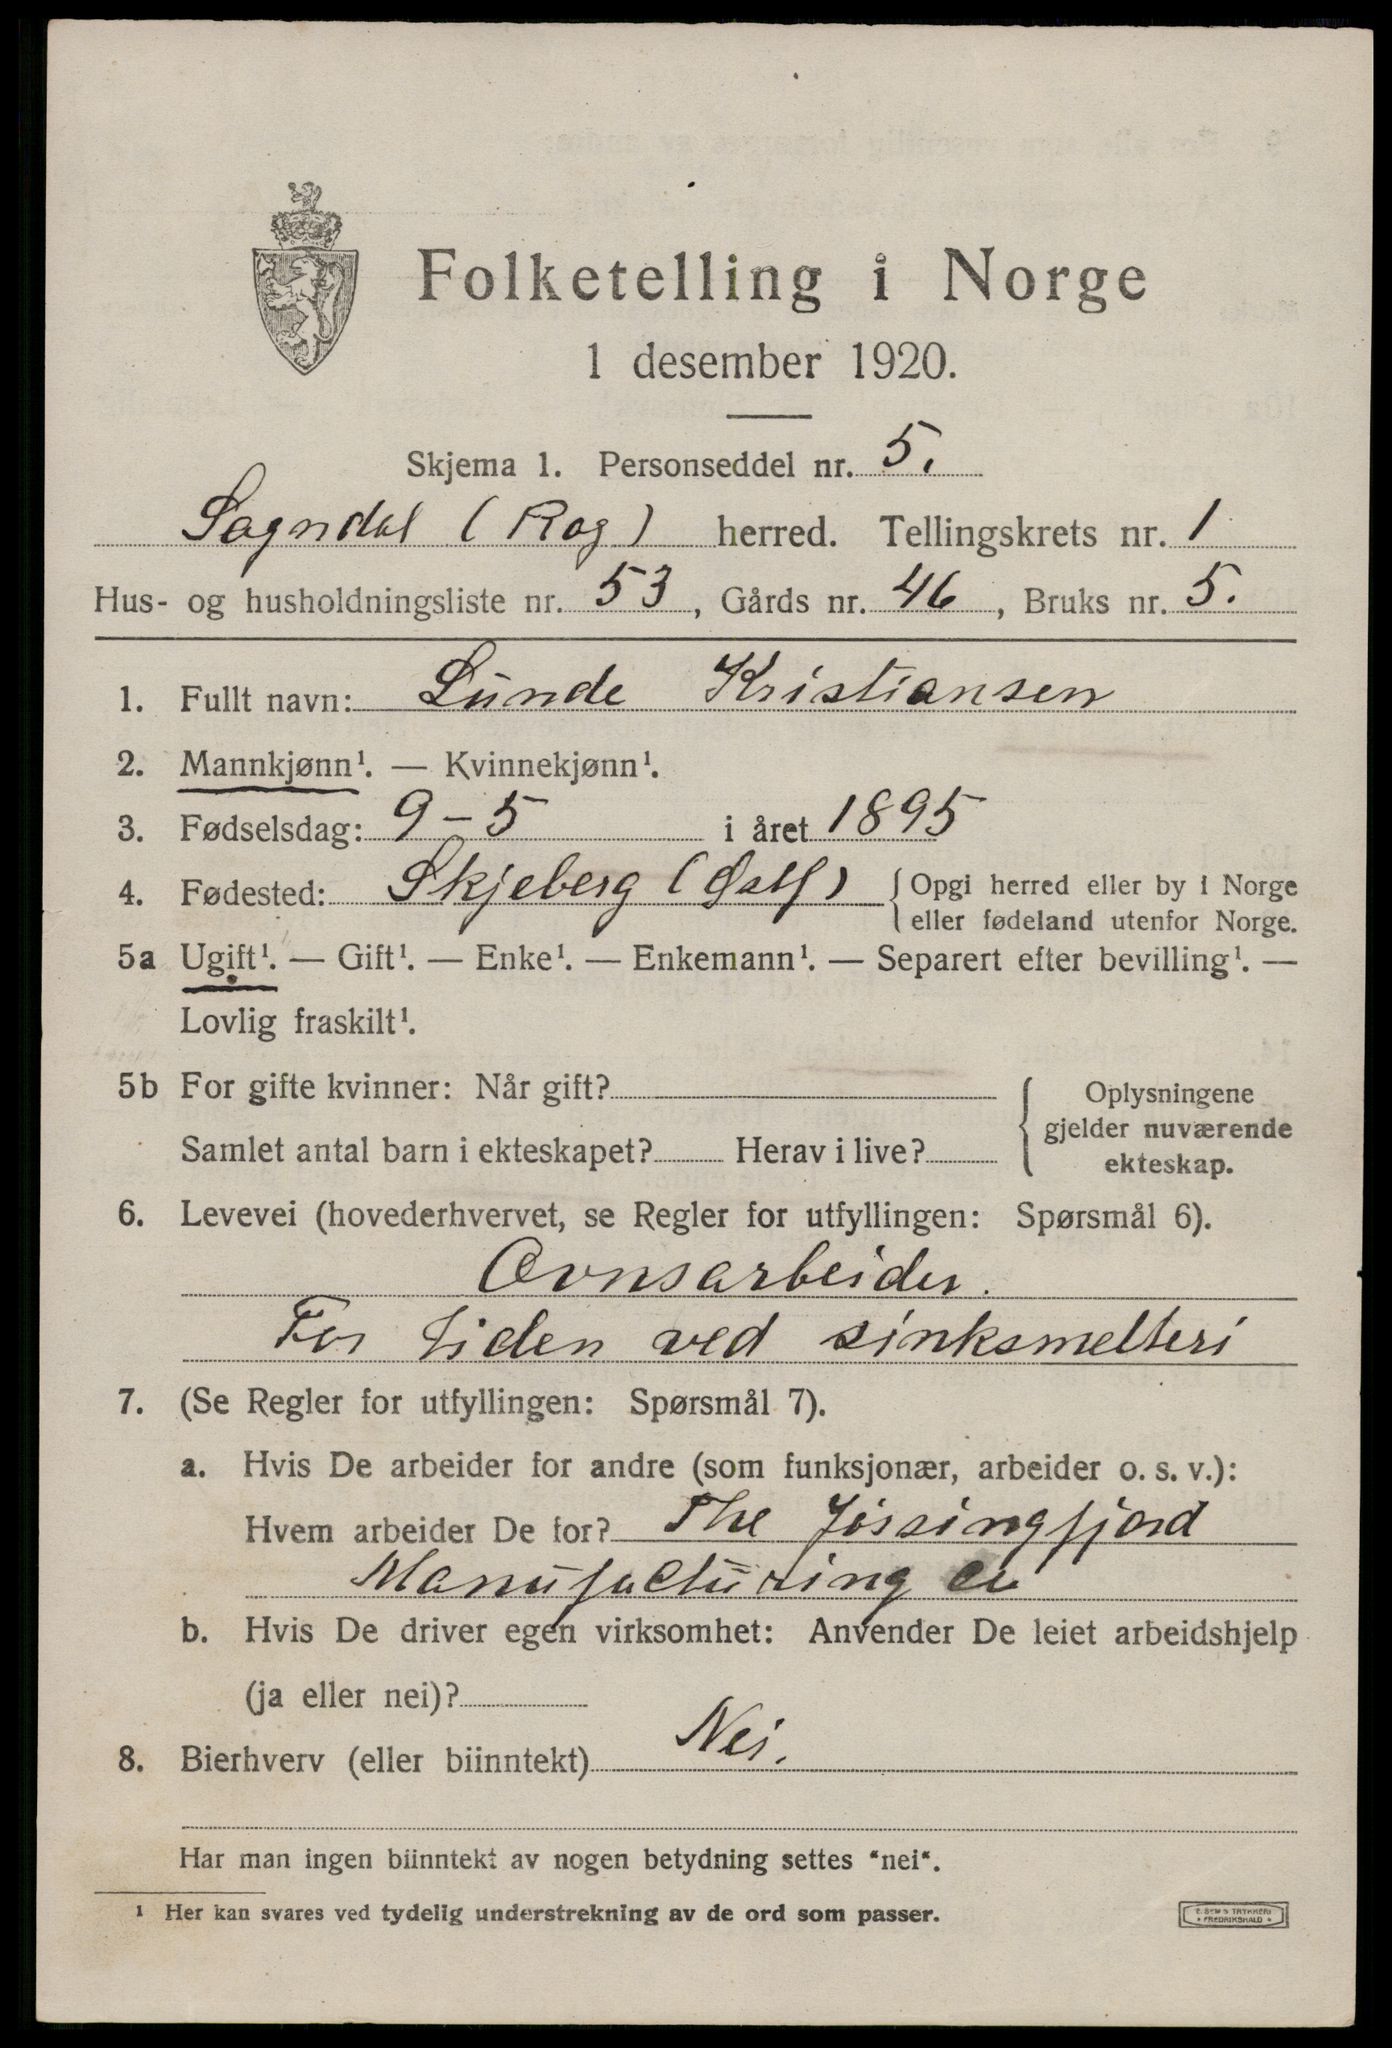 Folketelling i Norge
1 desember 1920.
Skjema 1. Personseddel nr. 5.
Sogndal (Rog) herred. Tellingskrets nr. 1
Hus- og husholdningsliste nr. 53, Gårds nr. 46, Bruks nr. 5.
1. Fullt navn: Lunde Kristiansen
2. Mannkjønn¹. — Kvinnekjønn¹.
3. Fødselsdag: 9-5 i året 1895
4. Fødested: Skjeberg (Østf) { Opgi herred eller by i Norge
eller fødeland utenfor Norge.
5a Ugift¹. — Gift¹. — Enke¹. — Enkemann¹. — Separert efter bevilling¹. —
Lovlig fraskilt¹.
5b For gifte kvinner: Når gift? { Oplysningene
gjelder nuværende
Samlet antal barn i ekteskapet? Herav i live?
ekteskap.
6. Levevei (hovederhvervet, se Regler for utfyllingen: Spørsmål 6).
Ovnsarbeider.
For tiden ved sinksmelteri
7. (Se Regler for utfyllingen: Spørsmål 7).
a. Hvis De arbeider for andre (som funksjonær, arbeider o. s. v.):
Hvem arbeider De for? The Jøssingfjord
Manufacturing co
b. Hvis De driver egen virksomhet: Anvender De leiet arbeidshjelp
(ja eller nei)?
8. Bierhverv (eller biinntekt) Nei.
Har man ingen biinntekt av nogen betydning settes "nei".
¹ Her kan svares ved tydelig understrekning av de ord som passer.
E. SEM'S TRYKKERI
* FREDRIKSHALD *